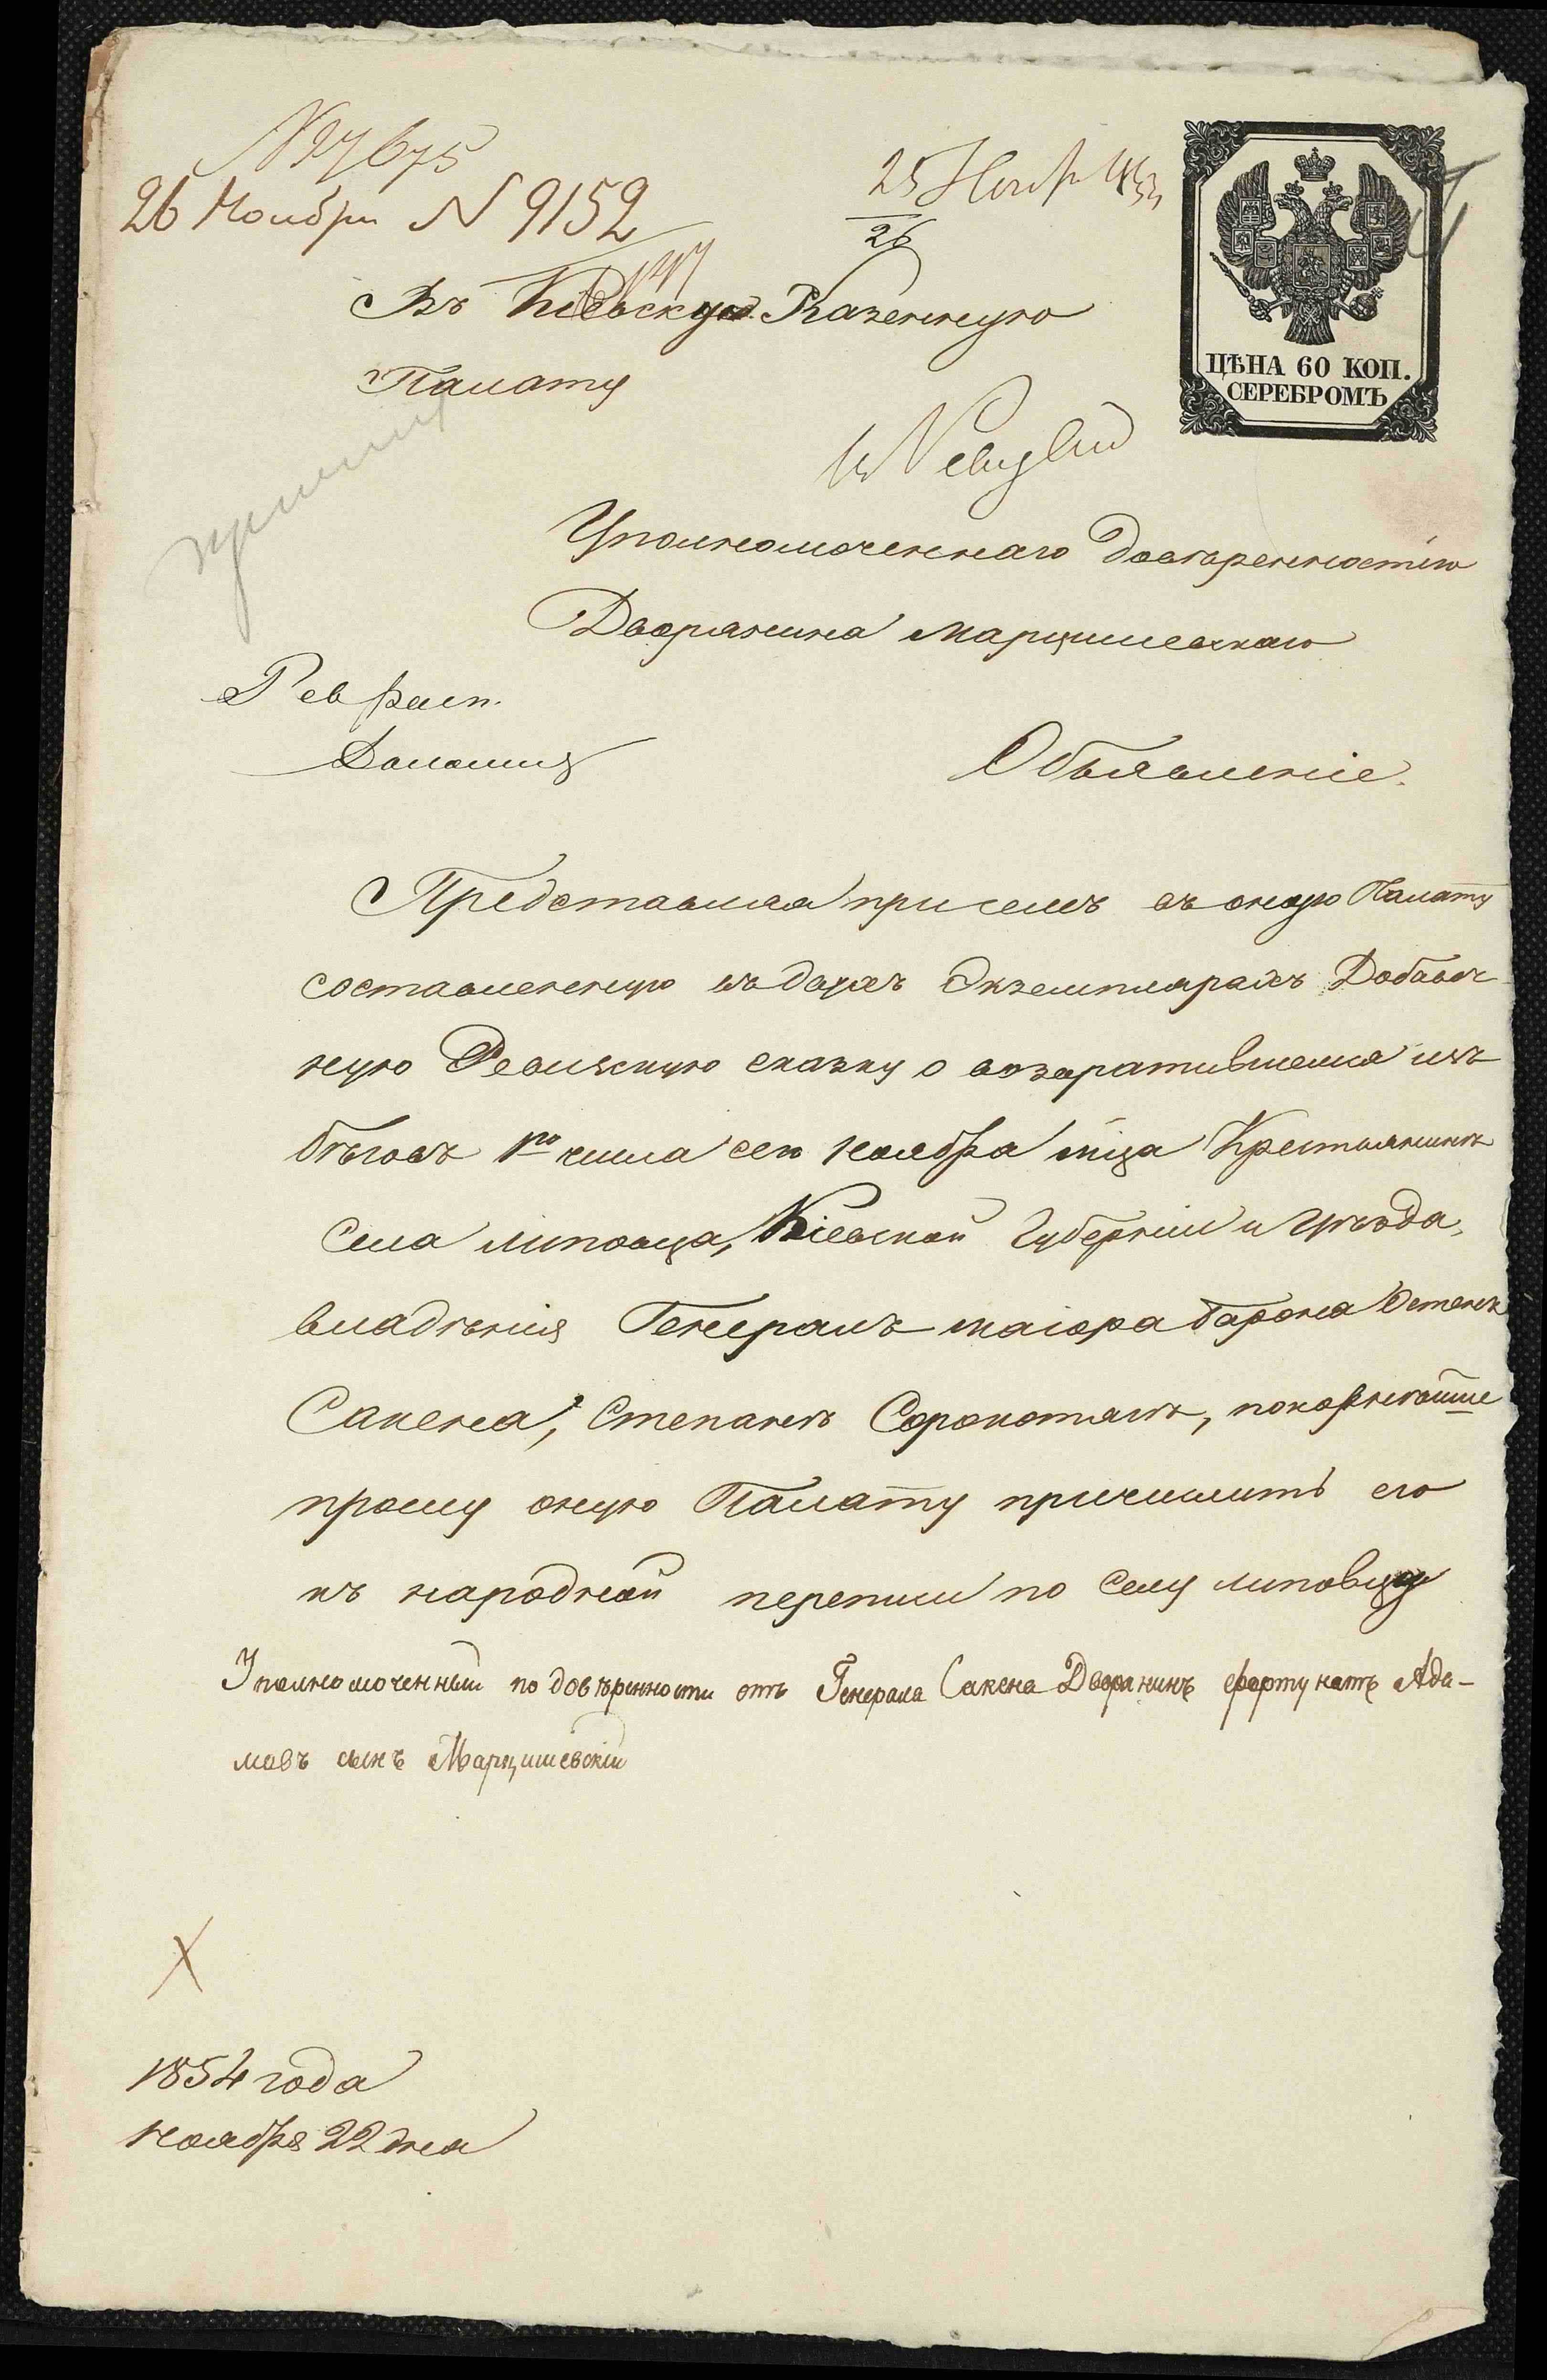 26 Ноября N 9152
25 Нояб
26
ЦѢНА 60 КОП.
СЕРЕБРОМЪ
Въ Кіевскую Казенную
Палату
Уполномоченнаго довѣренностію
Дворянина Марцишевскаго
Рев
Объявленіе.
Представляя при семъ въ оную Палату
составленную въ двухъ Экземплярахъ Добавоч
ную Ревизскую сказку о возвратившемся изъ
бѣговъ 1го числа сего Ноября мѣца Крестьянинѣ
Села Липовца, Кіевской Губерніи и Уѣзда,
владѣнія Генералъ-маіора Барона Остенъ
Сакена, Степанѣ Сорокотягѣ, покорнѣйше
прошу оную Палату причислить его
къ народной переписи по Селу Липовцу
Уполномоченный по довѣренности отъ Генерала Сакена Дворянинъ Фортунатъ Ада-
мовъ сынъ Марцишевскій
X
1854 года
Ноября 22 дня